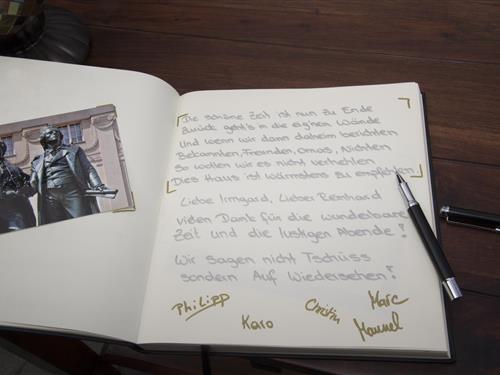 Die schöne Zeit ist nun zu Ende
Zurück geht's in die eig'nen Wände
Und wenn wir dann daheim berichten
Bekannten, Freunden, Omas, Nichten
So wollen wir es nicht verhehlen
Dies Haus ist wärmstens zu empfehlen.
Liebe Irmgard, Lieber Bernhard
vielen Dank für die wunderbare
Zeit und die lustigen Abende!
Wir sagen nicht Tschüss
sondern Auf Wiedersehen!
Philipp
Karo
Christin
Marc
Manuel